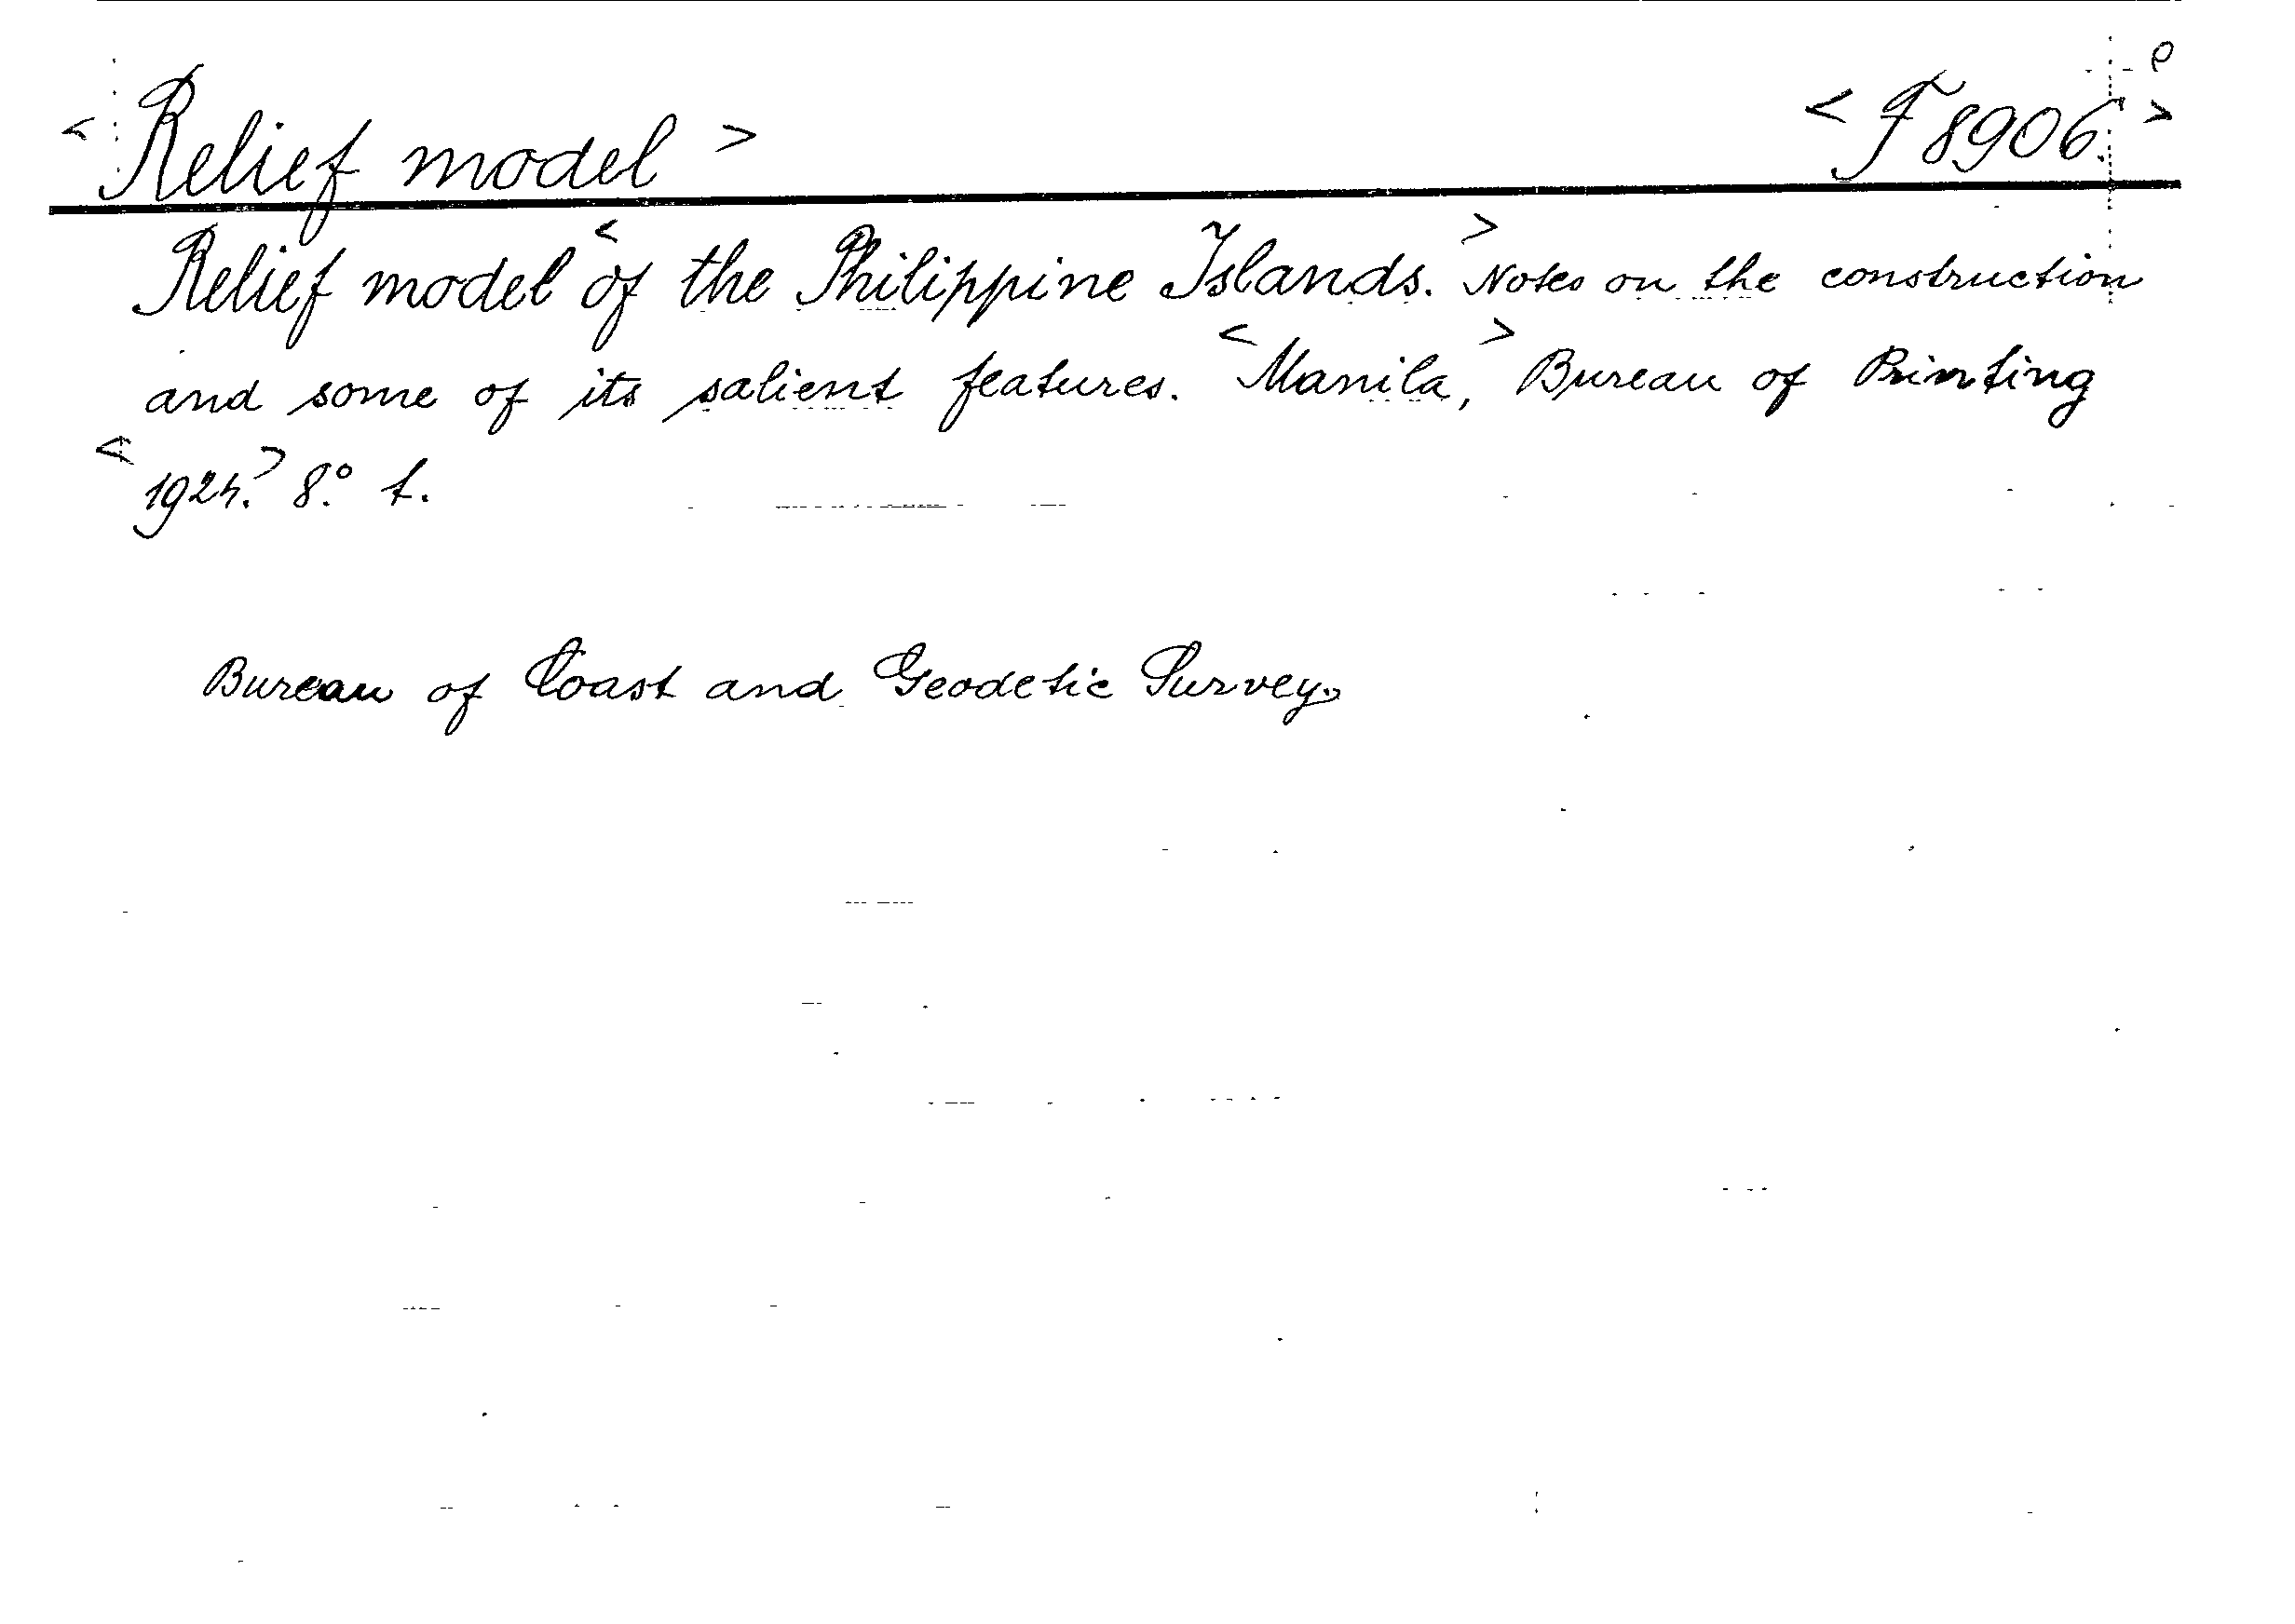 < Relief model > < F 8906. >
Relief model < of the Philippine Islands. > Notes on the construction
and some of its salient features. < Manila, > Bureau of Printing
< 1924. > 8.° t.
Bureau of Coast and Geodetic Survey.